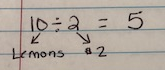 10 ÷ 2 = 5
Lemons $2